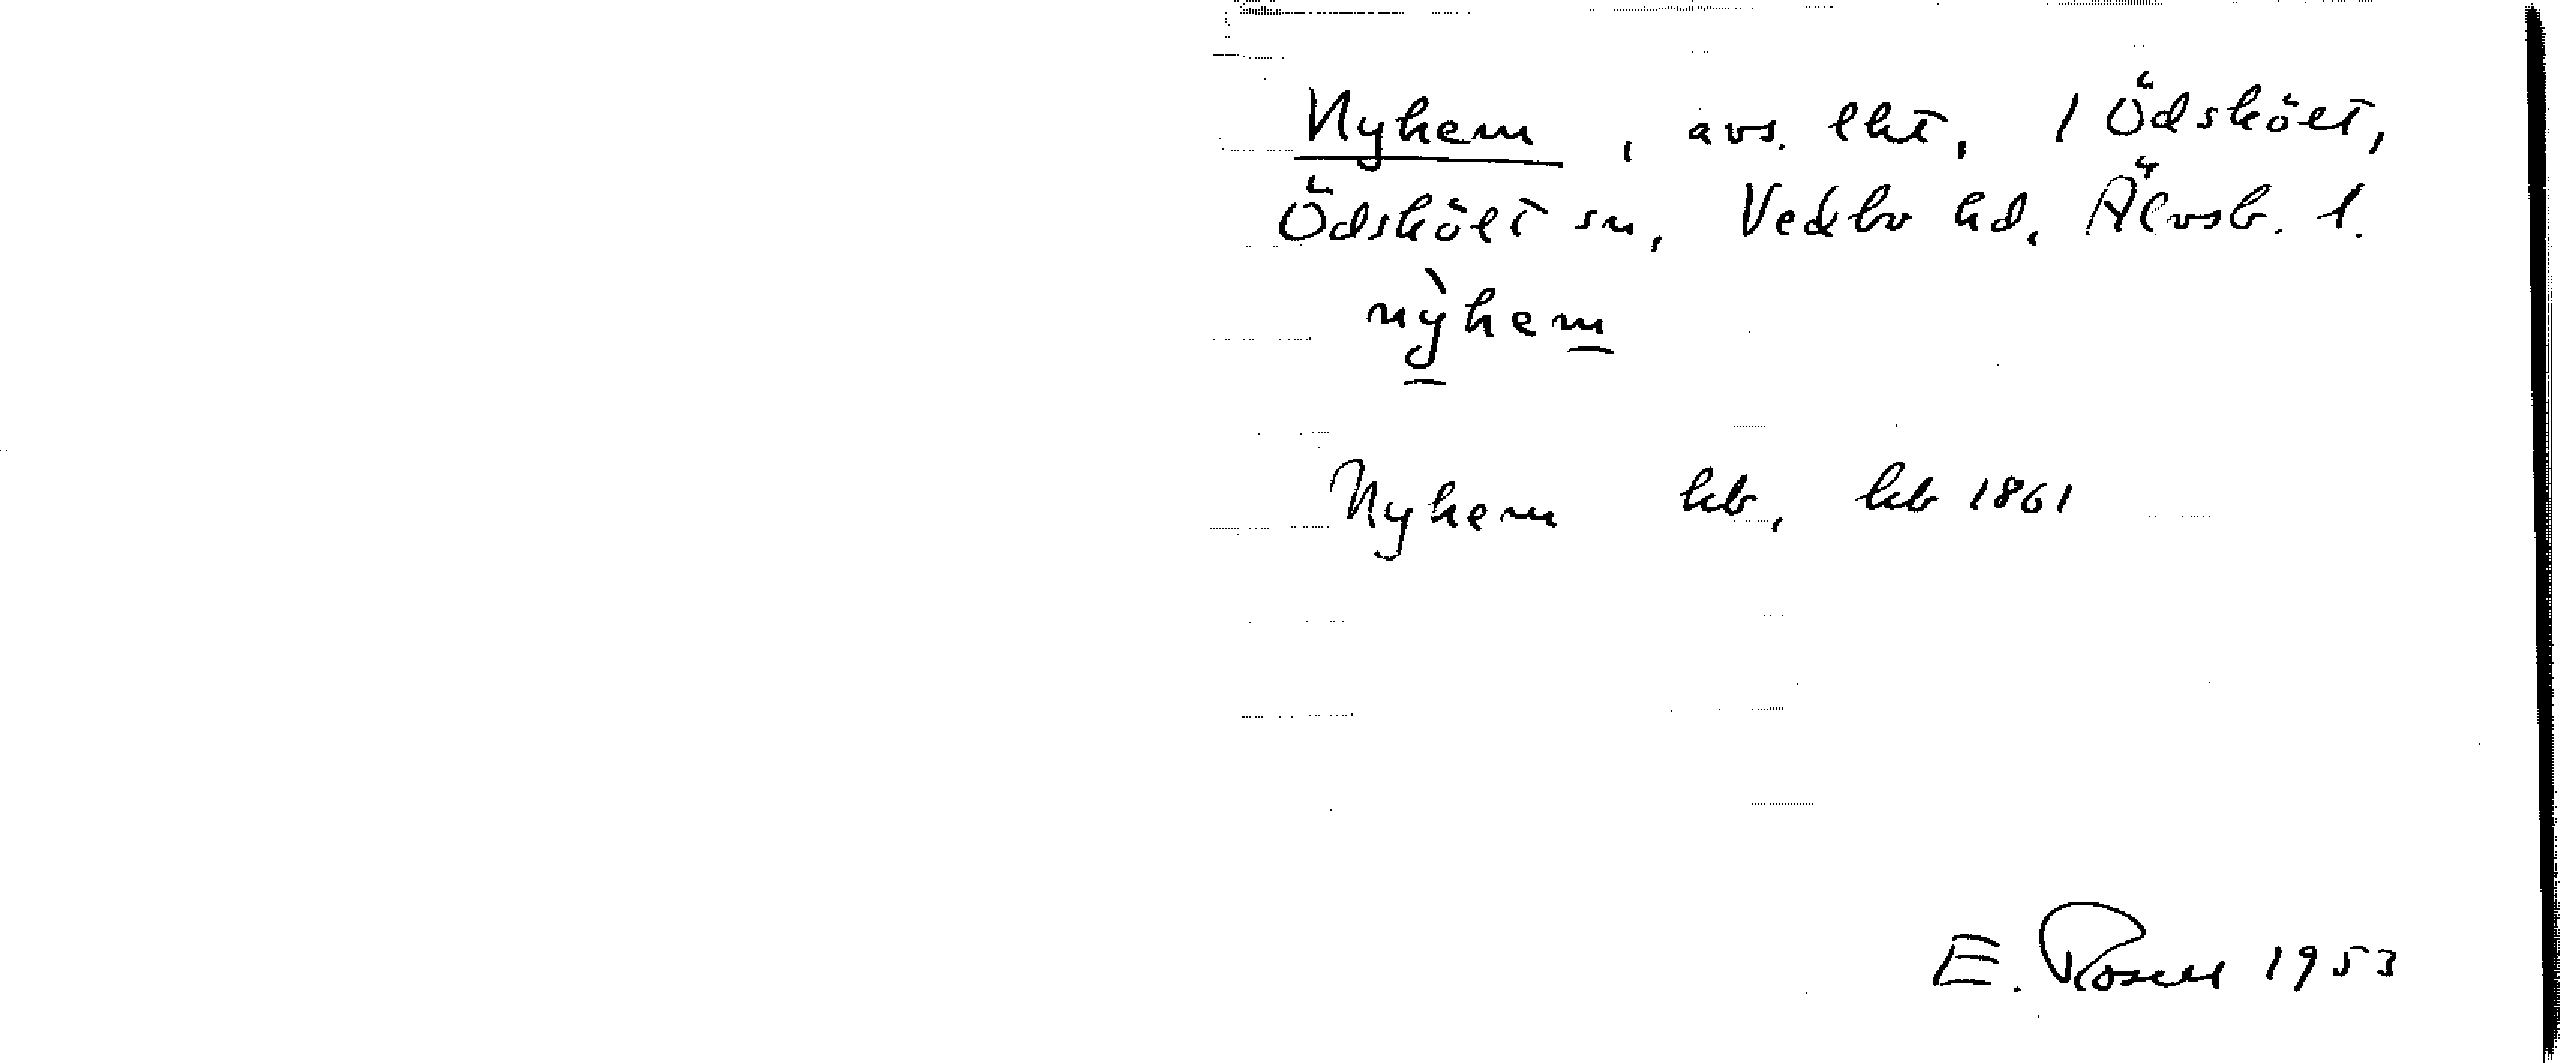 Nyhem, avs. lht, i Ödskölt,
Ödskölt sn, Vedbo hd, Älvsb. l.
nỳhem
Nyhem hb, kb 1861
E. Rosell 1953